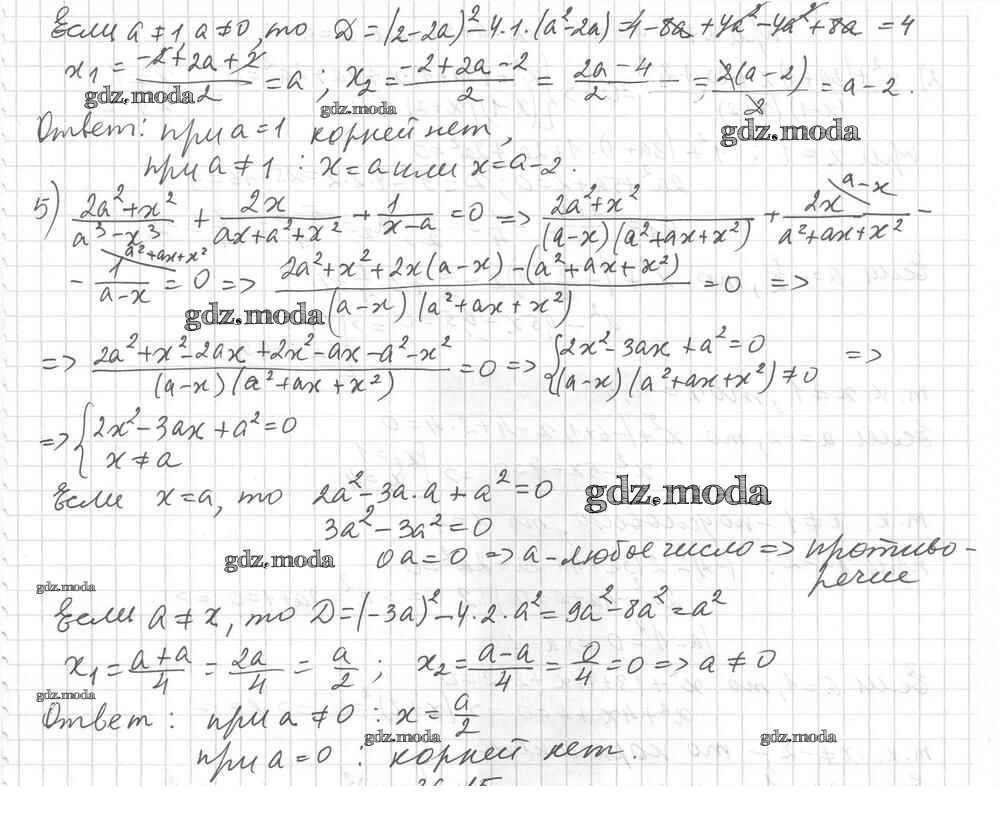 Если a ≠ 1 a ≠ 0, то D = (2 - 2a)² - 4·1·(a² - 2a) = 4 - 8a + 4a² - 4a² + 8a = 4
x₁ = (-2 + 2a + 2)/2 = a ; x₂ = (-2 + 2a - 2)/2 = (2a - 4)/2 = 2(a - 2)/2 = a - 2.
gdz.moda gdz.moda gdz.moda
Ответ: при a = 1 корней нет,
при a ≠ 1 : x = a или x = a - 2.
5) (2a² + x²)/(a³ - x³) + 2x/(ax + a² + x²) + 1/(x - a) = 0 => (2a² + x²)/((a - x)(a² + ax + x²)) + 2x/(a² + ax + x²) \a - x -
- 1/(a - x) \a² + ax + x² = 0 => (2a² + x² + 2x(a - x) - (a² + ax + x²))/((a - x)(a² + ax + x²)) = 0 =>
gdz.moda
=> (2a² + x² - 2ax + 2x² - ax - a² - x²)/((a - x)(a² + ax + x²)) = 0 => { 2x² - 3ax + a² = 0 (a - x)(a² + ax + x²) ≠ 0 =>
=> { 2x² - 3ax + a² = 0
x ≠ a
Если x = a, то 2a² - 3a·a + a² = 0
gdz.moda
3a² - 3a² = 0
0a = 0 => a - любое число => противо-
речие
gdz.moda
gdz.moda
Если a ≠ x, то D = (-3a)² - 4·2·a² = 9a² - 8a² = a²
x₁ = (a + a)/4 = 2a/4 = a/2 ; x₂ = (a - a)/4 = 0/4 = 0 => a ≠ 0
gdz.moda
Ответ : при a ≠ 0 : x = a/2
gdz.moda gdz.moda
при a = 0 : корней нет.